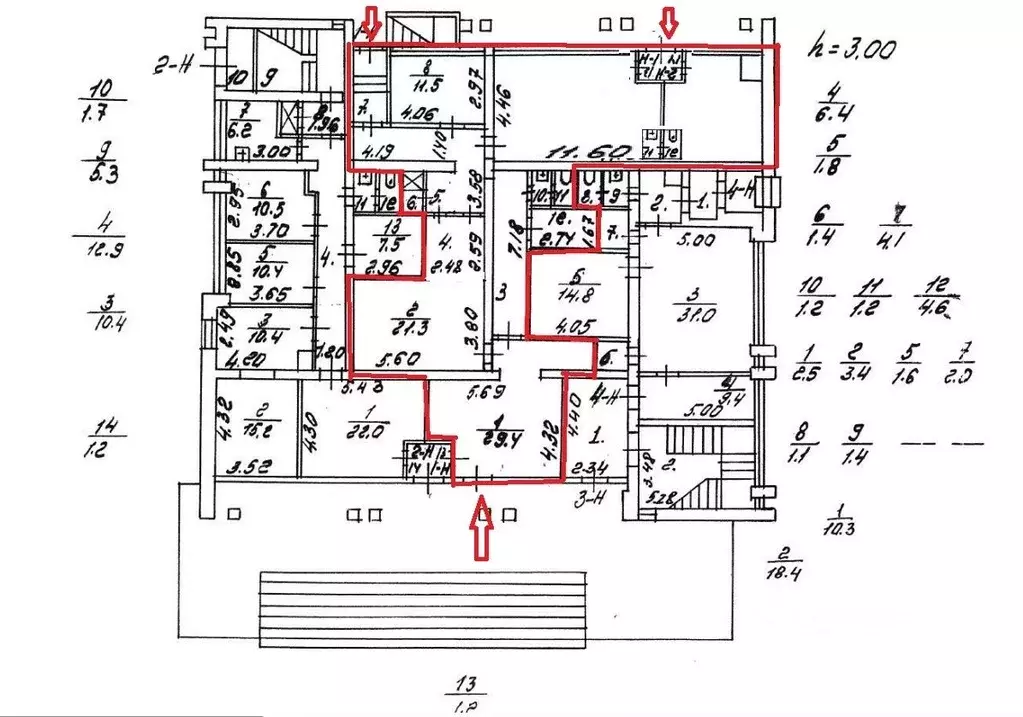 h = 3,00
2-Н
10
9
10
1.7
8
11.5
4.06
2.97
4.46
Н-1
Н-2
4
6.4
7
6.2
8
1.96
7.
3.00
4.19
1.40
11.60
11
12
9
5.3
5
1.8
6
10.5
3.70
2.95
11
12
6.
5.
3.58
10.
11
8.
9
2.
1.
4-Н
6
1.4
4.1
4
12.9
13
7.5
2.96
4.
2.48
2.59
7.18
12.
2.74
1.67
7.
5.00
5
10.4
3.65
2.85
4.
3
5
14.8
4.05
3
31.0
10
1.2
11
1.2
12
4.6
3
10.4
3
10.4
4.20
2.49
1.20
2
21.3
5.60
3.80
6.
1
2.5
2
3.4
5
1.6
7
2.0
5.43
5.69
4-Н
4
9.4
5.00
14
1.2
4.32
2
15.2
3.52
4.30
1
22.0
2-Н
14
1-Н
1
29.4
4.32
4.40
1.
2.34
3-Н
3.48
2.
5.28
8
1.1
9
1.4
1
10.3
2
18.4
13
1.2